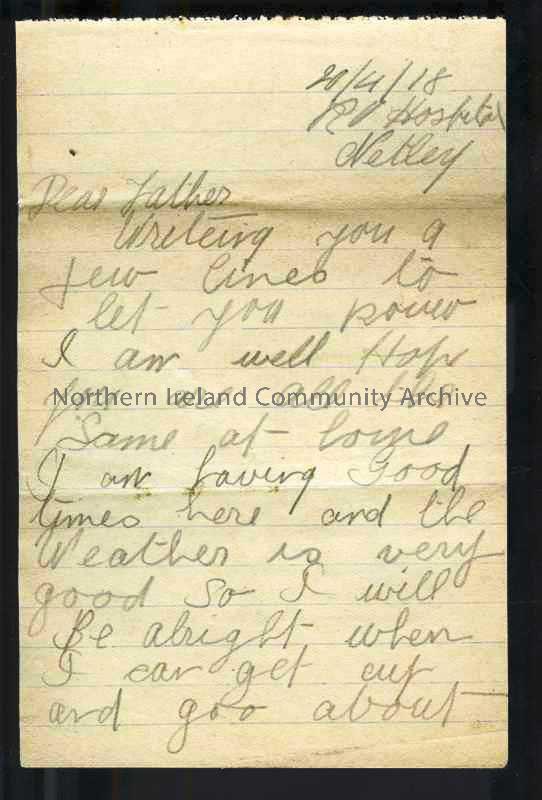 20/4/18
RV Hospital
Netley
Dear Father
Writeing you a
few lines to
let you know
I am well Hope
you are all the
Northern Ireland Community Archive
Same at home
I am having Good
times here and the
Weather is very
good so I will
Be alright when
I can get out
and goo about